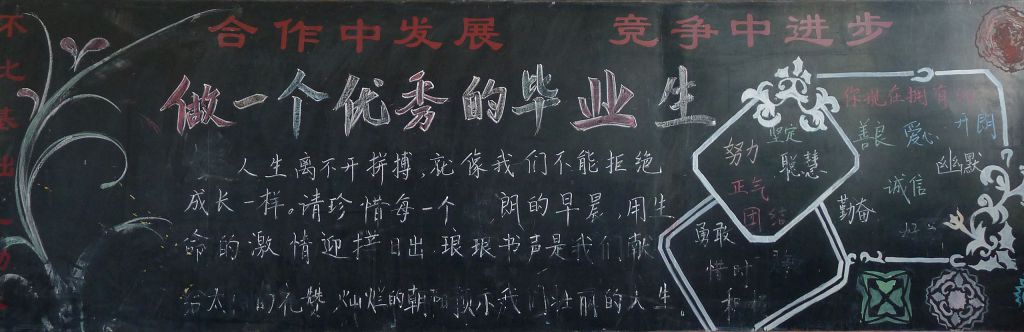 合作中发展 竞争中进步
做一个优秀的毕业生
人生离不开拼搏，就像我们不能拒绝
成长一样。请珍惜每一个 朗的早晨，用生
命的激情迎接日出 琅琅书声是我们献
给太 的花 灿烂的朝 预示我们壮丽的人生。
不比基础
努力 坚定
聪慧
正气
团结
勇敢
惜时
你现在拥有
善良 爱心 开朗
幽默
诚信
勤奋